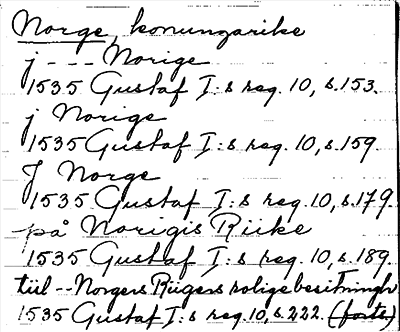 Norge, konungarike
j - - - Norige
1535 Gustaf I:s reg. 10, s. 153.
j Norige
1535 Gustaf I:s reg. 10, s. 159
J Norge
1535 Gustaf I:s reg. 10, s. 179.
på Norigis Riike
1535 Gustaf I:s reg. 10, s. 189.
tiil -- Norgers Riigers rolige besitningh
1535 Gustaf I:s reg. 10, s. 222. (forts.)